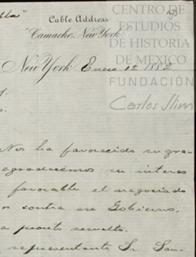 Cable Address
Camacho, New York
CENTRO DE
ESTUDIOS
DE HISTORIA
DE MÉXICO
FUNDACIÓN
Carlos Slim
New York Enero 12
Nos ha favorecido su gra
agradecemos su interes
favorable el negociado
contra ese Gobierno,
pronto resuelto.
representante Sr. San